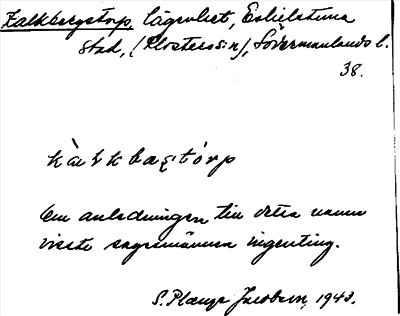 Kalkbergstorp, lägenhet, Eskilstuna
stad, (Klosters sn), Södermanlands l.
38.
kàlkbæștórp
Om anledningen till detta namn
visste sagesmännen ingenting.
S. Plange Jacobson, 1943.